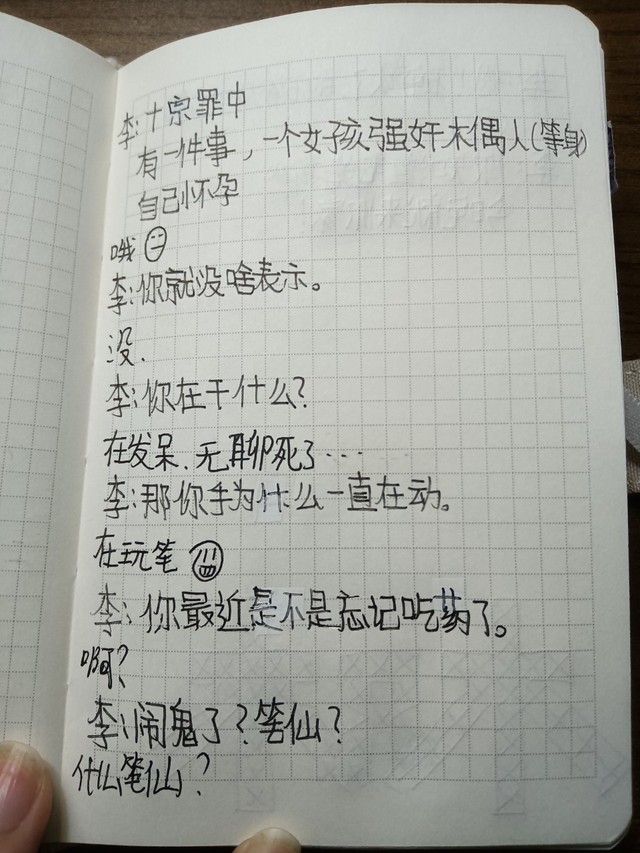 李:十宗罪中
有一件事，一个女孩强奸木偶人(等身)
自己怀孕
哦
李:你就没啥表示。
没.
李:你在干什么?
在发呆.无聊死了…
李:那你手为什么一直在动。
在玩笔
李:你最近是不是忘记吃药了。
啊?
李:闹鬼了?笔仙?
什么笔仙?